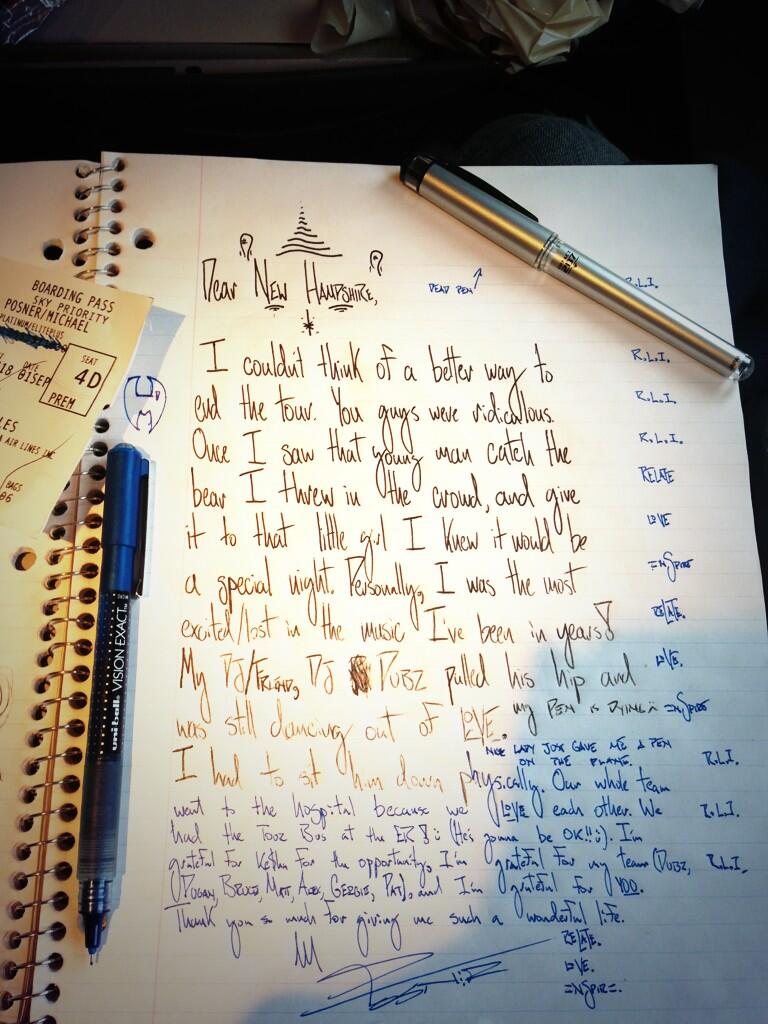 BOARDING PASS
SKY PRIORITY
POSNER/MICHAEL
PLATINUM/ELITEPLUS
DATE
SEAT
18 01SEP
4D
PREM
LES
AIR LINES INC
BAGS
06
uni-ball VISION EXACT
MICRO
Dear New Hampshire,
DEAD PEN
R.L.I.
I couldn't think of a better way to
R.L.I.
end the tour. You guys were ridiculous.
R.L.I.
Once I saw that young man catch the
R.L.I.
bear I threw in the crowd, and give
RELATE
it to that little girl I knew it would be
LOVE
a special night. Personally, I was the most
INSPIRE
excited/lost in the music I've been in years!
RELATE.
My DJ/FRIEND, DJ DUBZ pulled his hip and
LOVE.
was still dancing out of LOVE. my PEN is DYING
INSPIRE
NICE LADY JUST GAVE ME A PEN
ON THE PLANE.
I had to sit him down physically. Our whole team
R.L.I.
went to the hospital because we LOVE each other. We
R.L.I.
had the Tour Bus at the ER! :) (He's gonna be OK!! :)). I'm
grateful for Ke$ha for the opportunity, I'm grateful for my team (DUBZ,
R.L.I.
DUGAN, BRUCE, MAT, ALEX, GEORGIE, PAT), and I'm grateful for YOU.
Thank you so much for giving me such a wonderful life.
RELATE.
LOVE.
INSPIRE.